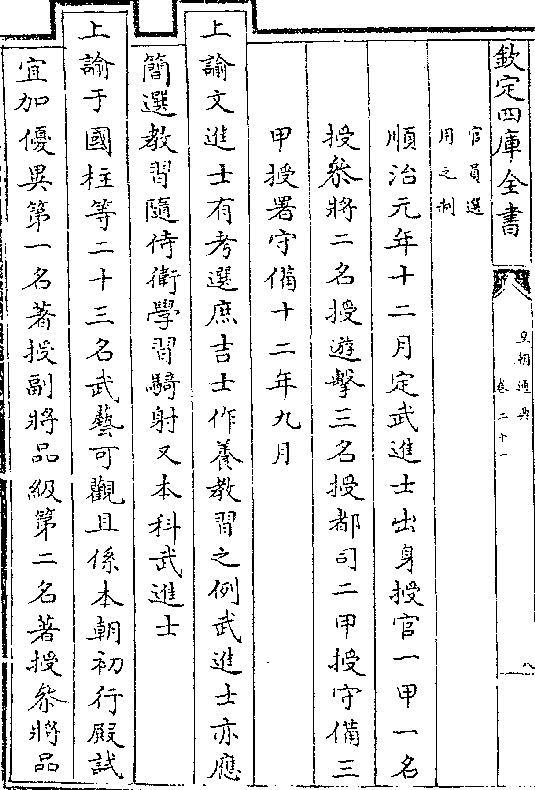 欽定四庫全書
皇朝通典
卷二十一
八
官員選
用之制
順治元年十二月定武進士出身授官一甲一名
授叅將二名授遊擊三名授都司二甲授守備三
甲授署守備十二年九月
上諭文進士有考選庶吉士作養教習之例武進士亦應
簡選教習隨侍衛學習騎射又本科武進士
上諭于國柱等二十三名武藝可觀且係本朝初行殿試
宜加優異第一名著授副將品級第二名著授叅將品